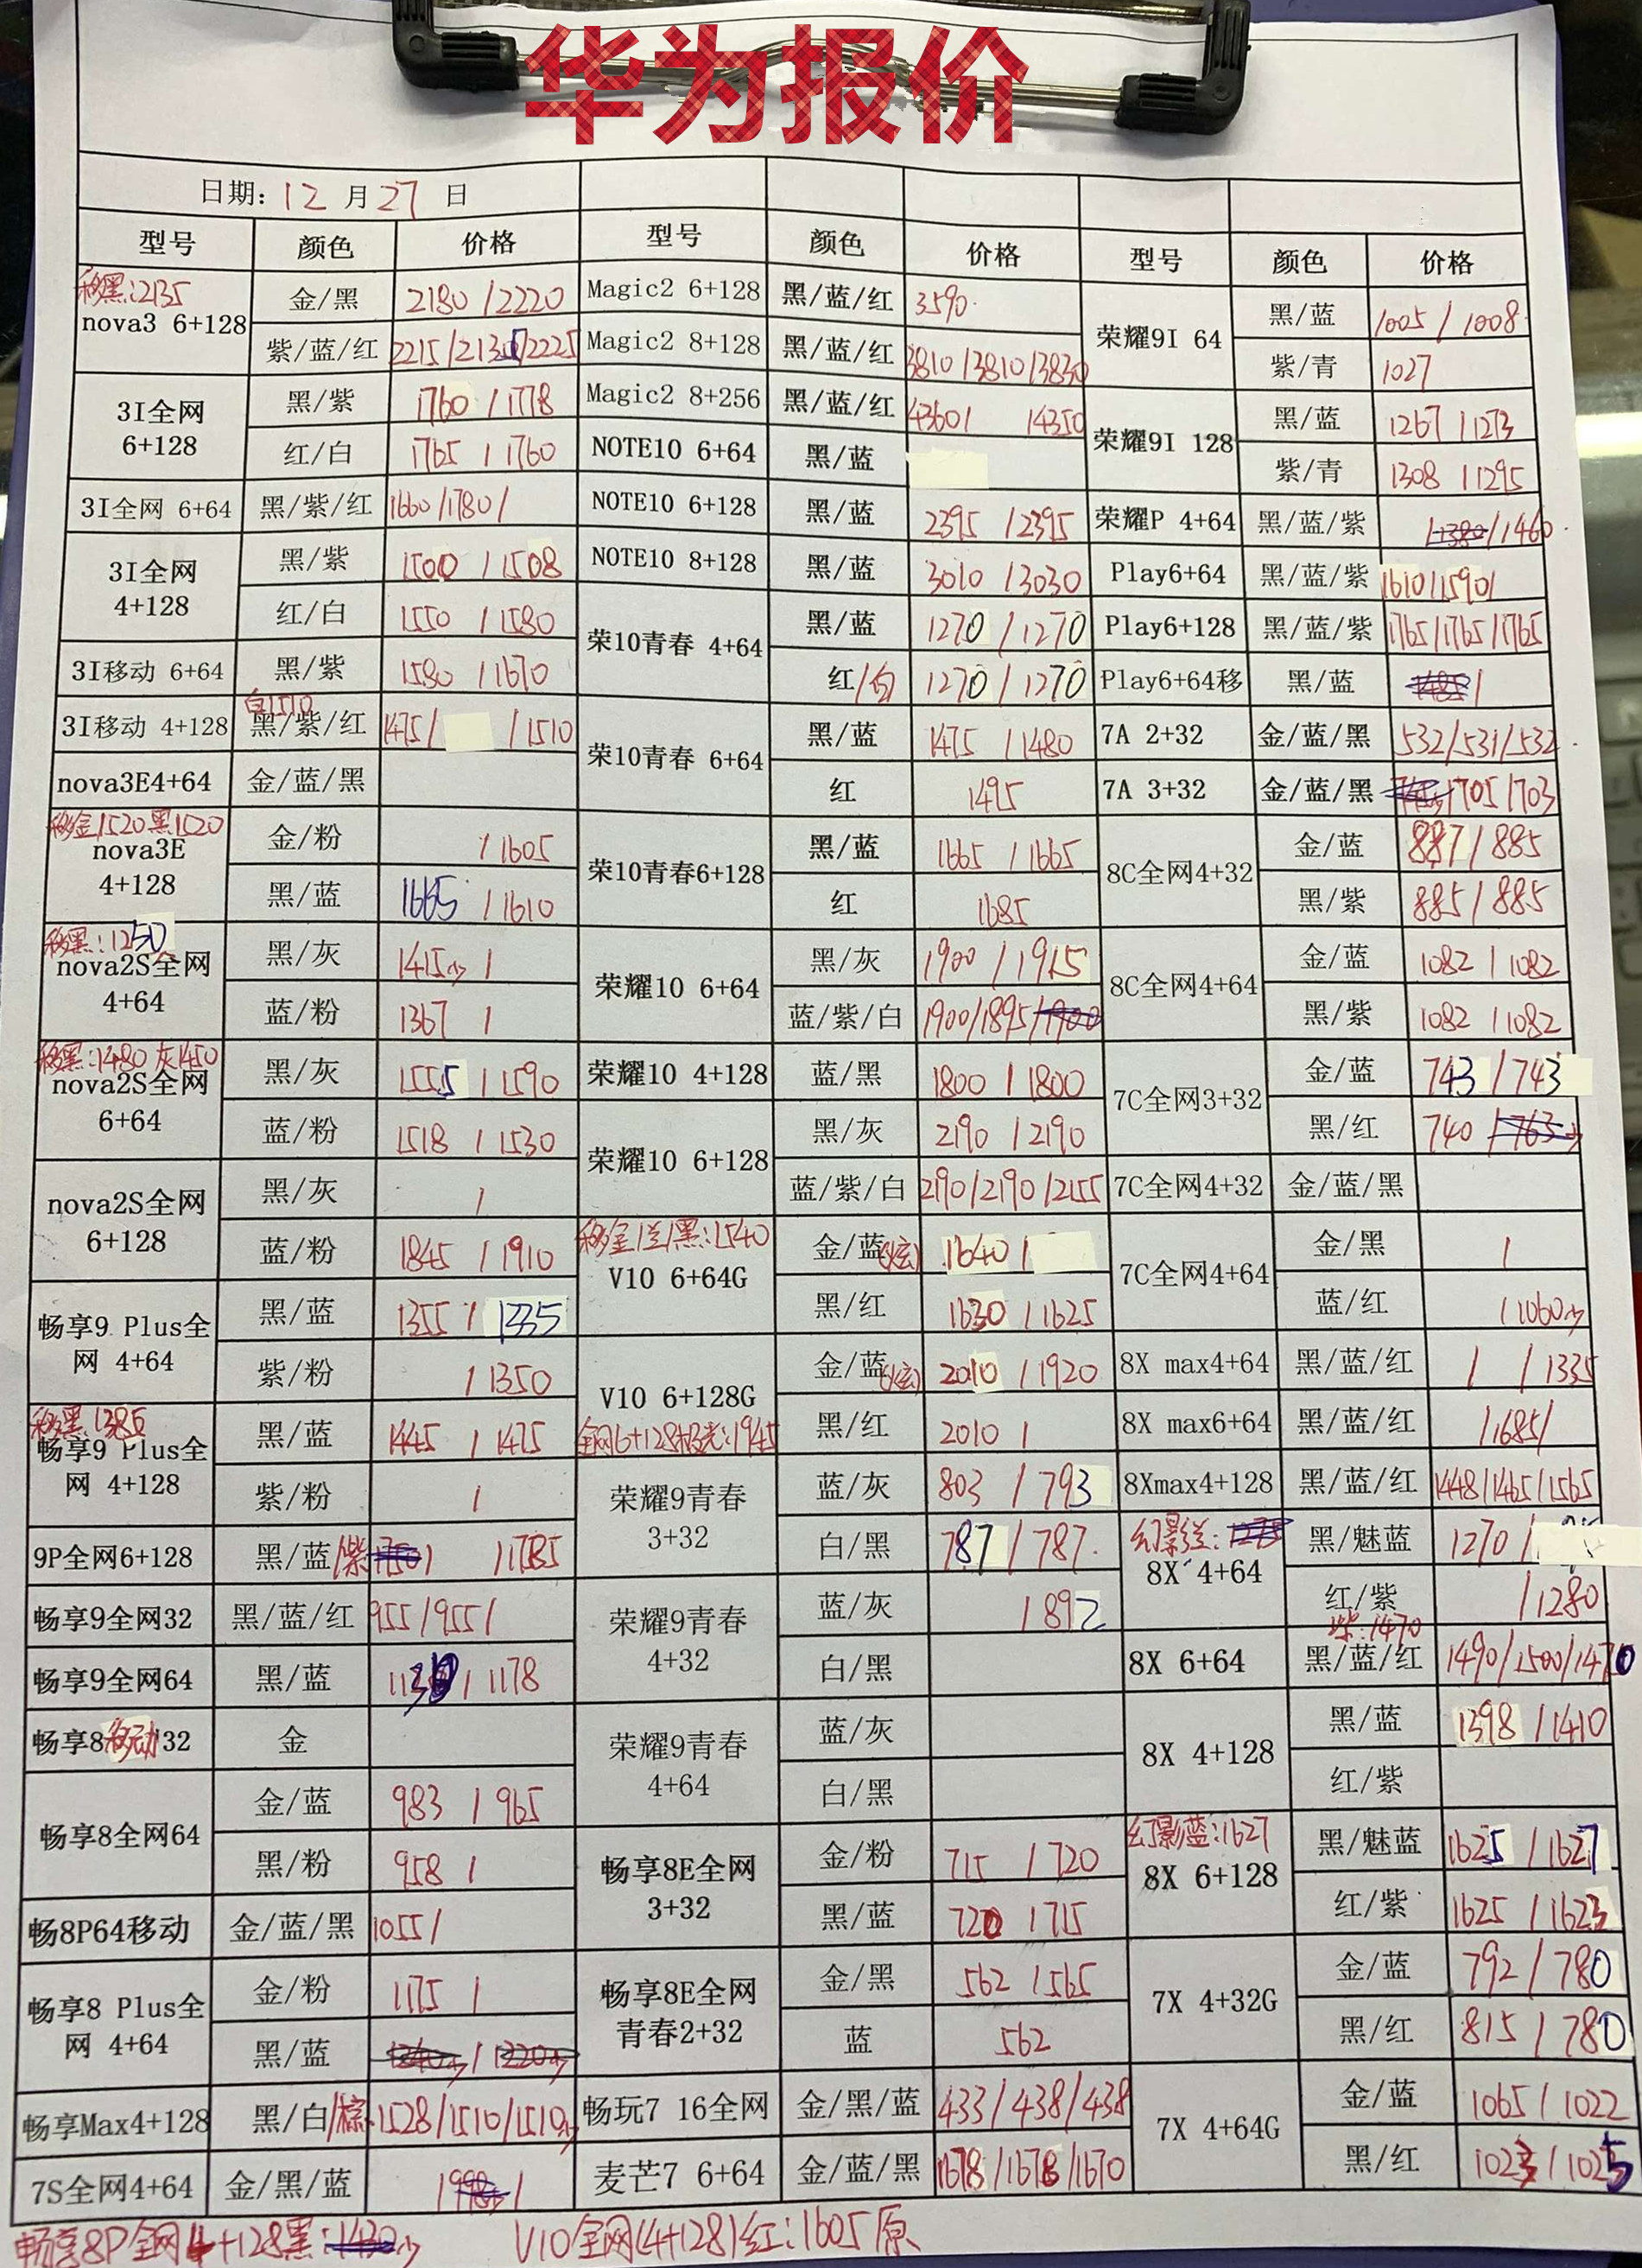 华为报价
日期: 12 月 27 日
型号 颜色 价格 型号 颜色 价格 型号 颜色 价格
移黑:2135
nova3 6+128
金/黑 2180/2220
紫/蓝/红 2215/213/2225
3I全网
6+128
黑/紫 1760/1778
红/白 1765/1760
3I全网 6+64 黑/紫/红 1660/1780/
3I全网
4+128
黑/紫 1500/1508
红/白 1550/1580
3I移动 6+64 黑/紫 1580/1670
白1510
3I移动 4+128 黑/紫/红 1475/ /1510
nova3E4+64 金/蓝/黑
移金1520黑1520
nova3E
4+128
金/粉 /1605
黑/蓝 1665/1610
移黑:1250
nova2S全网
4+64
黑/灰 1415少/
蓝/粉 1367/
移黑:1480灰1450
nova2S全网
6+64
黑/灰 1555/1590
蓝/粉 1518/1530
nova2S全网
6+128
黑/灰 /
蓝/粉 1845/1910
畅享9 Plus全
网 4+64
黑/蓝 1355/1335
紫/粉 /1350
移黑:1385
畅享9 Plus全
网 4+128
黑/蓝 1445/1475
紫/粉 /
9P全网6+128 黑/蓝/紫 1750/ /1785
畅享9全网32 黑/蓝/红 955/955/
畅享9全网64 黑/蓝 /1178
畅享8移动32 金
畅享8全网64
金/蓝 983/965
黑/粉 958/
畅8P64移动 金/蓝/黑 1055/
畅享8 Plus全
网 4+64
金/粉 1175/
黑/蓝 1240少/1220少
畅享Max4+128 黑/白/棕 1528/1510/1510少
7S全网4+64 金/黑/蓝 / /
Magic2 6+128 黑/蓝/红 3590
Magic2 8+128 黑/蓝/红 3810/3810/3830
Magic2 8+256 黑/蓝/红 4360/ /4350
NOTE10 6+64 黑/蓝
NOTE10 6+128 黑/蓝 2395/2395
NOTE10 8+128 黑/蓝 3010/3030
荣10青春 4+64
黑/蓝 1270/1270
红/白 1270/1270
荣10青春 6+64
黑/蓝 1475/1480
红 1495
荣10青春6+128
黑/蓝 1665/1665
红 1685
荣耀10 6+64
黑/灰 1900/1915
蓝/紫/白 1900/1895/1900
荣耀10 4+128 蓝/黑 1800/1800
荣耀10 6+128
黑/灰 2190/2190
蓝/紫/白 2190/2190/2155
移金/兰/黑:1540
V10 6+64G
金/蓝(炫) 1640/
黑/红 1630/1625
V10 6+128G
全网6+128极光:1945
金/蓝(炫) 2010/1920
黑/红 2010/
荣耀9青春
3+32
蓝/灰 803/793
白/黑 787/787
荣耀9青春
4+32
蓝/灰 /892
白/黑
荣耀9青春
4+64
蓝/灰
白/黑
畅享8E全网
3+32
金/粉 715/720
黑/蓝 720/715
畅享8E全网
青春2+32
金/黑 562/565
蓝 562
畅玩7 16全网 金/黑/蓝 433/438/438
麦芒7 6+64 金/蓝/黑 1678/1678/1670
荣耀9I 64
黑/蓝 1005/1008
紫/青 1027
荣耀9I 128
黑/蓝 1267/1273
紫/青 1308/1295
荣耀P 4+64 黑/蓝/紫 /1380/1460
Play6+64 黑/蓝/紫 1610/1590/
Play6+128 黑/蓝/紫 1765/1765/1765
Play6+64移 黑/蓝 1485/
7A 2+32 金/蓝/黑 532/531/532
7A 3+32 金/蓝/黑 /705/703
8C全网4+32
金/蓝 887/885
黑/紫 885/885
8C全网4+64
金/蓝 1082/1082
黑/紫 1082/1082
7C全网3+32
金/蓝 743/743
黑/红 740/763少
7C全网4+32 金/蓝/黑
7C全网4+64
金/黑 /
蓝/红 /1060少
8X max4+64 黑/蓝/红 / /1335
8X max6+64 黑/蓝/红 /1685/
8Xmax4+128 黑/蓝/红 1448/1465/1565
幻影兰:1275
8X 4+64
黑/魅蓝 1270/
红/紫 /1280
紫:1470
8X 6+64 黑/蓝/红 1490/1500/1470
8X 4+128
黑/蓝 1398/1410
红/紫
幻影蓝:1627
8X 6+128
黑/魅蓝 1625/1627
红/紫 1625/1623
7X 4+32G
金/蓝 792/780
黑/红 815/780
7X 4+64G
金/蓝 1065/1022
黑/红 1023/1025
畅享8P全网4+128黑:1430少
V10全网(4+128)红:1605原